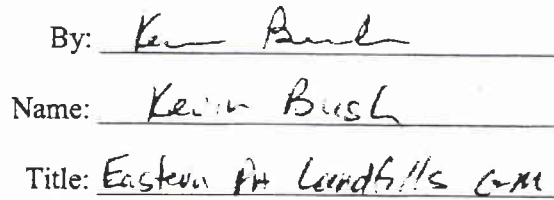 By: Kevin Bush
Name: Kevin Bush
Title: Eastern PA Landfills GM